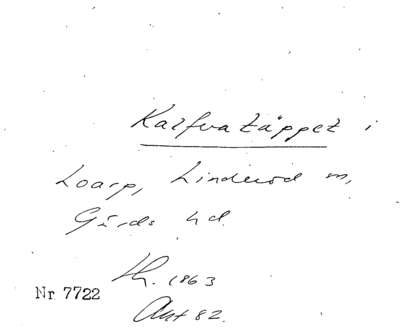 Kalfvatäppet i
Loarp, Linderöd sn,
Gärds hd.
Th. 1863
Nr 7722
Akt 82.